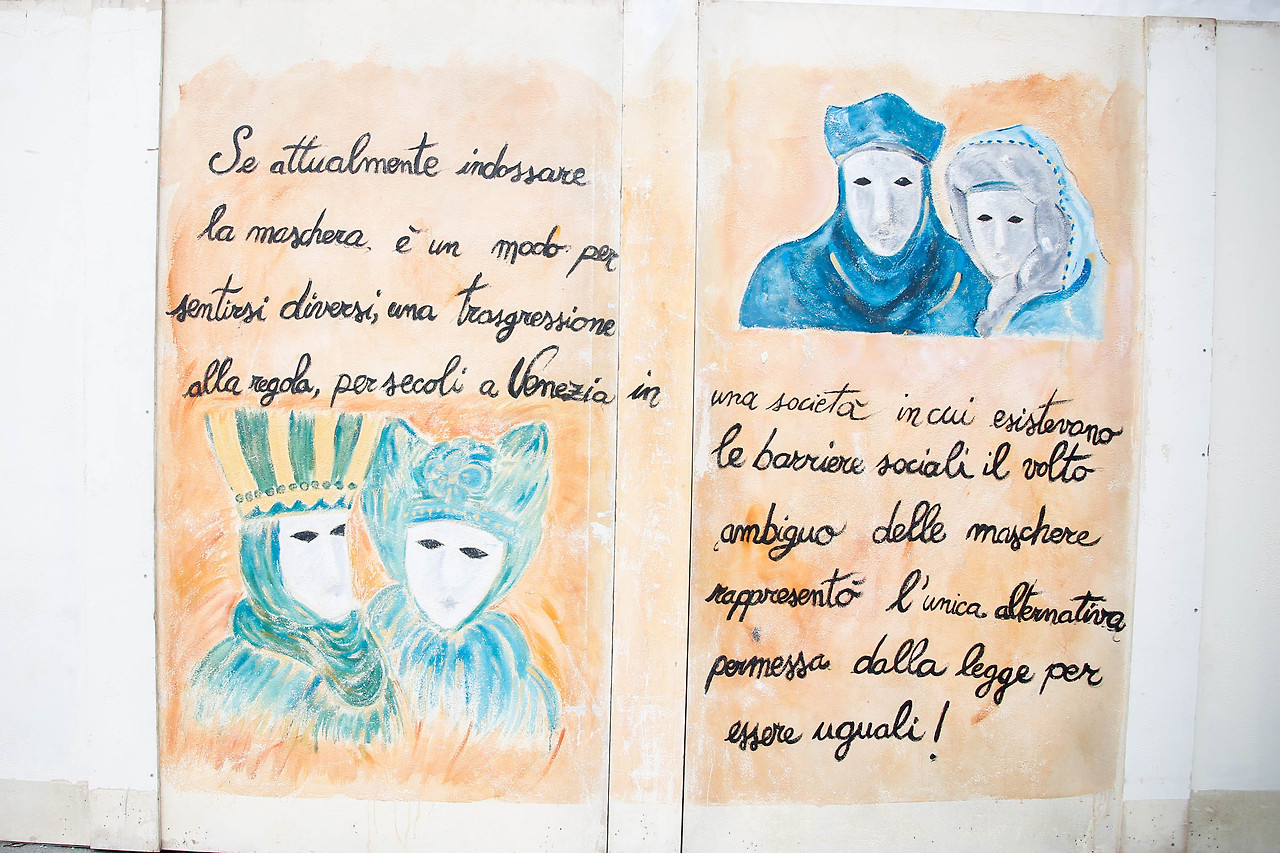 Se attualmente indossare
la maschera è un modo per
sentirsi diversi, una trasgressione
alla regola, per secoli a Venezia in
una società in cui esistevano
le barriere sociali il volto
ambiguo delle maschere
rappresentò l'unica alternativa
permessa dalla legge per
essere uguali!